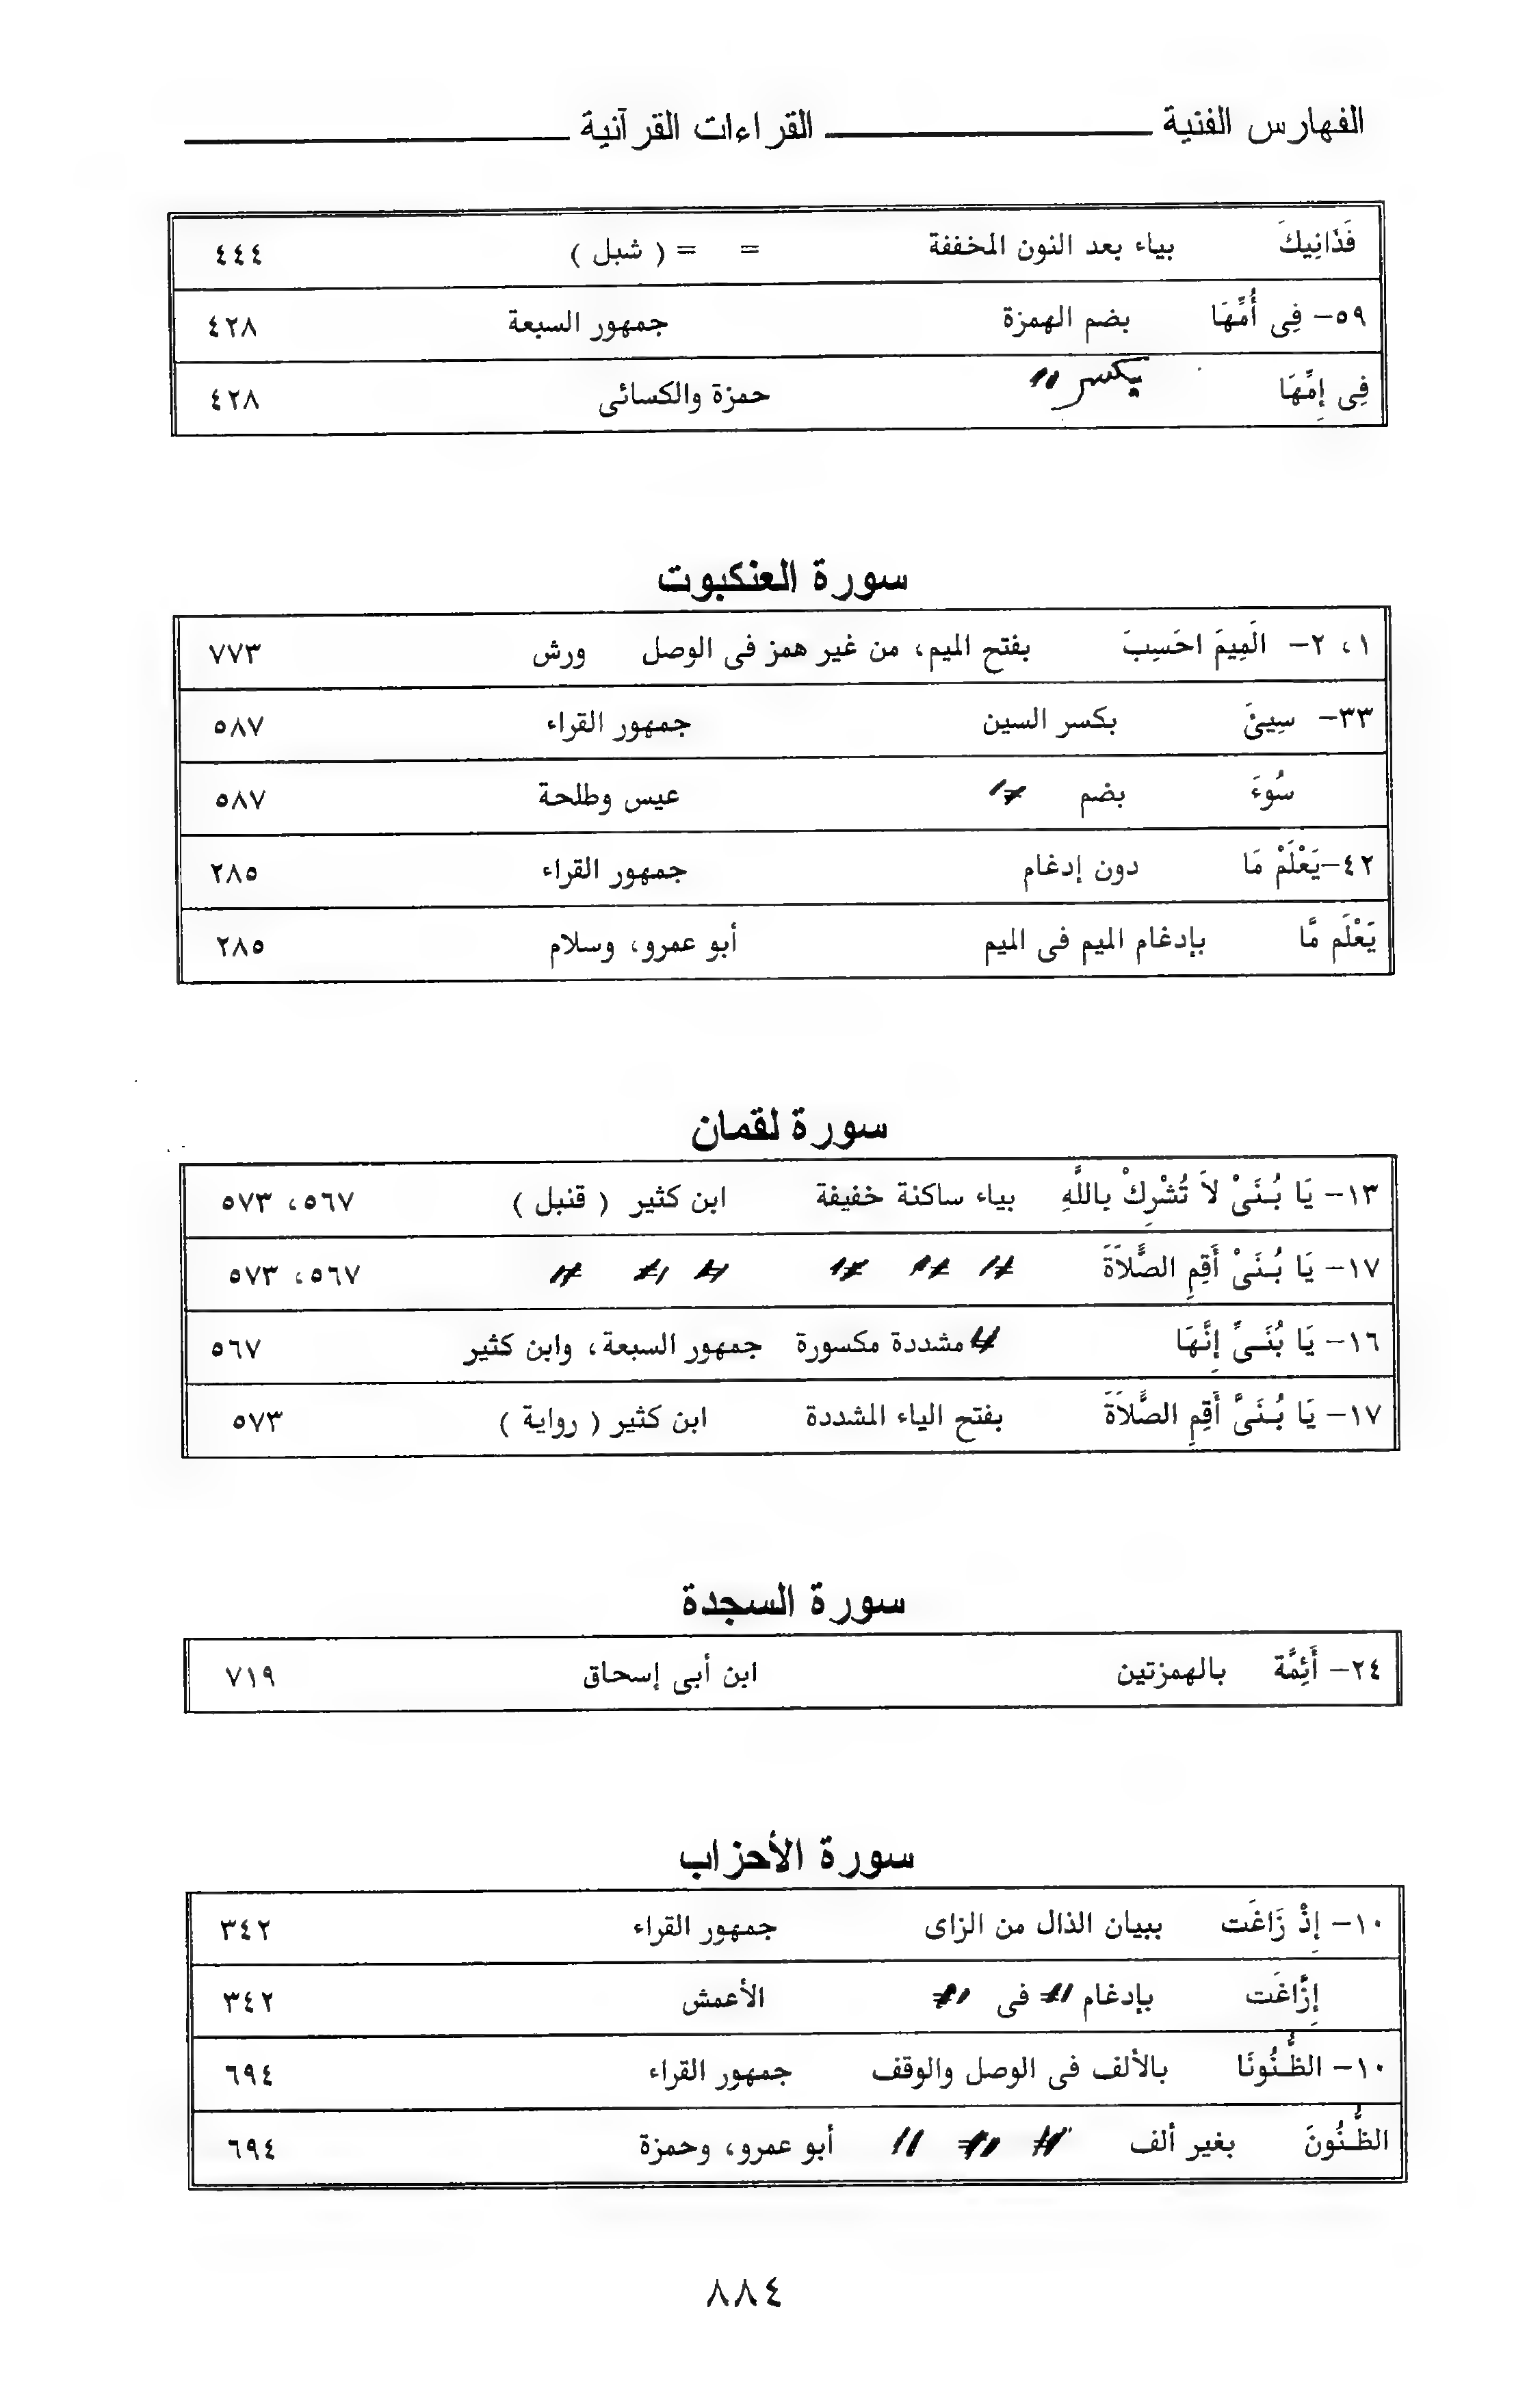 الفهارس الفنية القراءات القرآنية
فَذَانِيكَ بياء بعد النون المخففة = = ( شبل ) ٤٤٤
٥٩- فِى أُمِّهَا بضم الهمزة جمهور السبعة ٤٢٨
فِى إِمِّهَا بكسر " حمزة والكسائى ٤٢٨
سورة العنكبوت
١ ، ٢- الَمِيمَ احَسِبَ بفتح الميم، من غير همز فى الوصل ورش ٧٧٣
٣٣- سِيئَ بكسر السين جمهور القراء ٥٨٧
سُوءَ بضم " عيس وطلحة ٥٨٧
٤٢-يَعْلَمْ مَا دون إدغام جمهور القراء ٢٨٥
يَعْلَم مَّا بإدغام الميم فى الميم أبو عمرو، وسلام ٢٨٥
سورة لقمان
١٣- يَا بُنَىْ لاَ تُشْرِكْ باللَّهِ بياء ساكنة خفيفة ابن كثير ( قنبل ) ٥٦٧، ٥٧٣
١٧- يَا بُنَىْ أَقِمِ الصَّلاَةَ " " " " " " ٥٦٧، ٥٧٣
١٦- يَا بُنَىِّ إِنَّهَا " مشددة مكسورة جمهور السبعة، وابن كثير ٥٦٧
١٧- يَا بُنَىَّ أَقِمِ الصَّلاَةَ بفتح الياء المشددة ابن كثير ( رواية ) ٥٧٣
سورة السجدة
٢٤- أَئِمَّة بالهمزتين ابن أبى إسحاق ٧١٩
سورة الأحزاب
١٠- إِذْ زَاغَت ببيان الذال من الزاى جمهور القراء ٣٤٢
إِزَّاغَت بإدغام " فى " الأعمش ٣٤٢
١٠- الظُّنُونَا بالألف فى الوصل والوقف جمهور القراء ٦٩٤
الظُّنُونَ بغير ألف " " " أبو عمرو، وحمزة ٦٩٤
٨٨٤